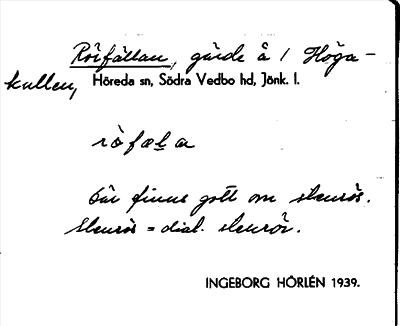 Rörfällan, gärde å 1 Höga-
kullen, Höreda sn, Södra Vedbo hd, Jönk. l.
ròfæla
Där finns gott om stenrös.
Stenrös = dial. stenrör.
INGEBORG HÖRLÉN 1939.